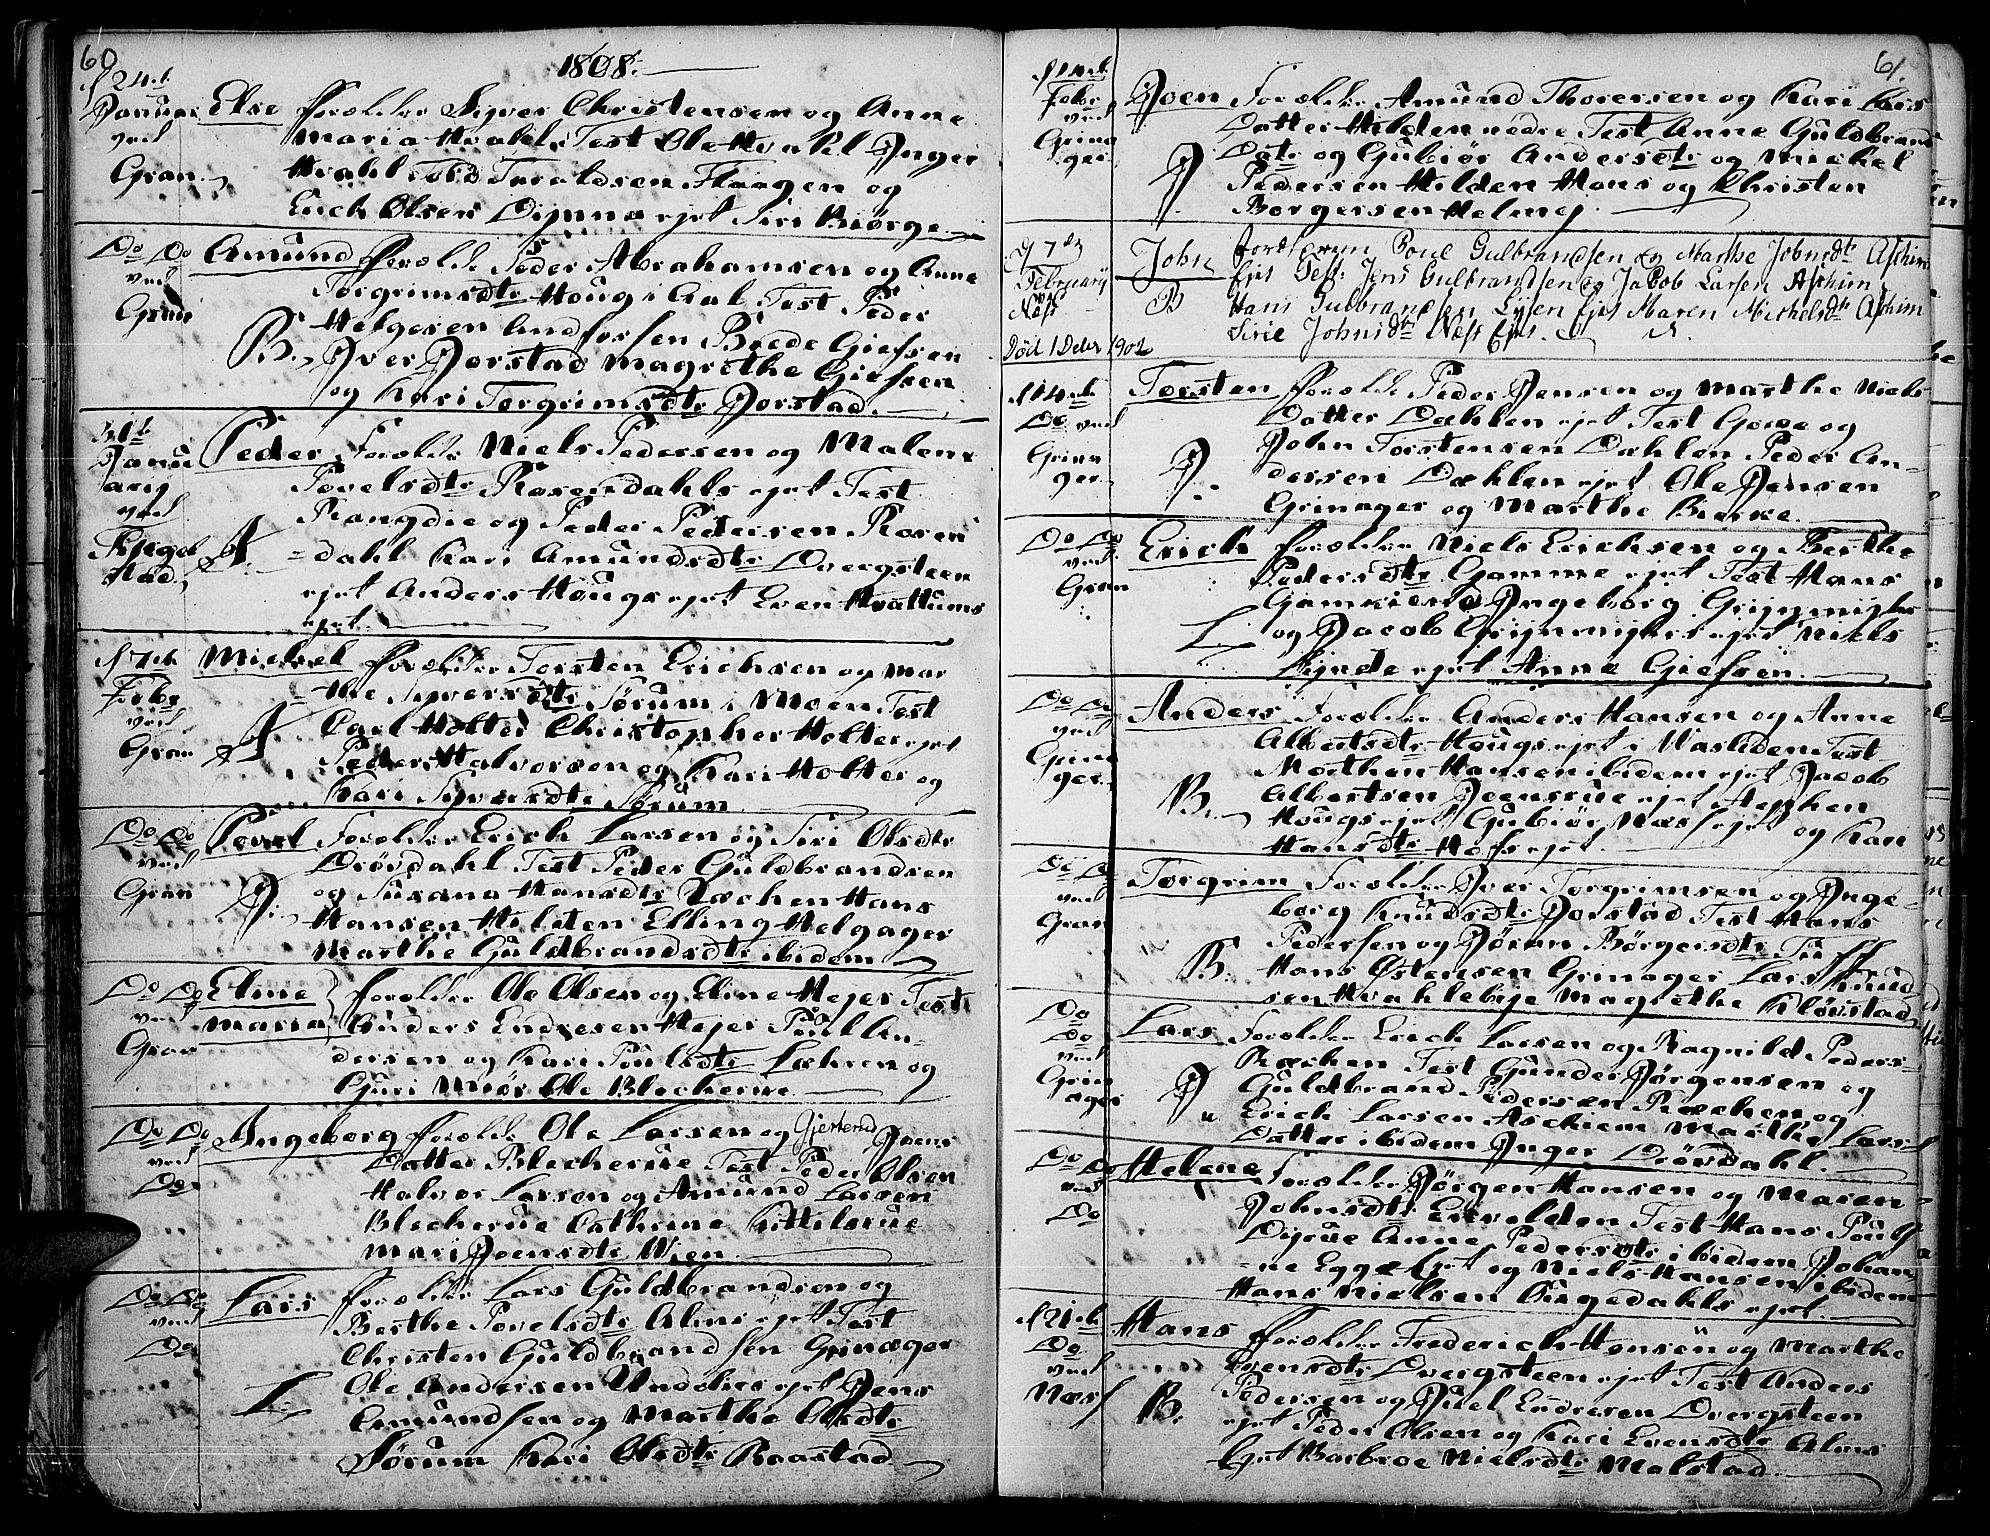 60
1808.
d 24.de
Januar
ved
Gran.
Else Forælder Syver Christensen og Anne
Maria Hvahls Test Ole Hvahl Inger
Hvahl Tord Taraldsen Flaagen og
Erich Olsen Dynna ejet Siri Biørge
Do Do
ved
Gran
Amund Forælder Peder Abrahamsen og Anne
Torgrimsdtr Houg i Aal Test Peder
Helgesen Brede Giefsen
B. Iver Jorstad Magrethe Giefsen
og Kari Torgrimsdtr Jorstad.
31te
Janu
arij
ved
Tingel
stad.
Peder Forælder Niels Pedersen og Malene
Povelsdtr Rosendahls ejet Test
Rangdie og Peder Pedersen Rosen
A. dahl Kari Amundsdtr Dvergsteen
ejet Anders Hougs ejet Even Hvattums
ejet.
d 7de
Febr
ved
Gran
Michel Forælder Torsten Erichsen og Mar
the Syversdtr Sørum i Moen Test
A. Carl Holter Christopher Holter ejet
Peder Halvorsen og Kari Holter og
Kari Syversdtr Sørum
Do Do
ved
Gran
Povel Forælder Erich Larsen og Siri Olsdtr
Drøvdahl Test Peder Guldbrandsen
og Susana Hansdtr Ræchen Hans
Hansen Hilden Elling Helgager
Marthe Guldbrandsdtr ibidem
Do Do
ved
Gran
Eline
Maria
Forælder Ole Olsen og Eline Hejer Test
Anders Endresen Hejer Poul An-
dersen og Kari Poulsdtr Læhren og
Guri Miør Ole Blecherue
Do Do
ved
Do
Ingeborg Forælder Ole Larsen og Gjertrud Joens
Datter Blecherue Test Peder Olsen
Halvor Larsen og Amund Larsen
Blecherue Cathrine Kittilsrue
Mari Joensdtr Wien
Do Do
ved
Do
Lars Forælder Lars Guldbrandsen og
Berthe Povelsdtr Alms ejet Test
Christen Guldbrandsen Grinager
L. Ole Andersen Undelies ejet Jens
Amundsen og Marthe Olsdtr
Sørum Kari Olsdtr Raastad
61.
d 14de
Febr
ved
Grina
ger
Joen Forælder Amund Thoresen og Kari Lars
Datter Hilden nedre Test Anne Guldbrand
Datr og Gubiør Andersdtr og Michel
Pedersen Hilden Hans og Christen
Borgersen Helmej
d 7de
February
Næs
Død 1 Debr 1902
John Forældrene Poul Gulbrandsen og Marthe Johnsdtr Aschim
Ejes Test: Jens Gulbrandsen og Jacob Larsen Aschim
B Hans Gulbrandsen Lysen Ejes Maren Michelsdtr Aschim
Sirie Johnsdtr Næss Ejes.
d 14de
Do ved
Grina
ger
Torsten Forælder Peder Jensen og Marthe Niels
Datter Dæhlen ejet Test Goroe og
John Torstensen Dæhlen Peder An-
dersen Dæhlen ejet Ole Jensen
Grinager og Marthe Bierke
Do Do
ved
Gran
Erich Forælder Niels Erichsen og Berthe
Pedersdtr Gamme ejet Test Hans
Gamkiend Ingeborg
L. og Jacob ejet Niels
Lynde ejet Anne Giefsen.
Do Do
ved
Grina
ger
Anders Forælder Anders Hansen og Anne
Albertsdtr Hougs ejet i Nasliden Test
Morthen Hansen ibidem ejet Jacob
B. Albertsen Joensrue ejet Stephen
Hougs ejet Gubiør Næs ejet og Kari
Hansdtr Hofs ejet.
Do Do
ved
Gran
Torgrim Forælder Iver Torgrimsen og Inge-
borg Knudsdtr Jorstad Test Hans
Pedersen og Jøran Børgersdtr
B. Hans Østensen Grinager Lars Knud
sen Hvahlebye Magrethe Kløvstad
Do
Do
ved
Grin
ager
Lars Forælder Erich Larsen og Ragnild Peders-
Ræchen Test Gunder Jørgensen og
Guldbrand Pedersen Ræchen og
Erich Larsen Aschiem Marthe Lars
Datter ibidem Inger Drøvdahl.
Do Do
ved
Do
Helene Forælder Jørgen Hansen og Maren
Johnsdtr Egvolden Test Hans Pouls
Dyrue Anne Pedersdtr ibidem Johan-
ne Egge ejet og Niels Hansen ibidem
Hans Nielsen Birgedahls ejet
d 21de
Do
ved
Næss
Hans Forælder Frederich Hansen og Marthe
Evensdtr Dvergsteen ejet Test Anders
B. Pedersen og Juel Endresen Dvergsteen
ejet Peder Olsen og Kari Evensdtr Alms
Ejet Barbroe Nielsdtr Molstad